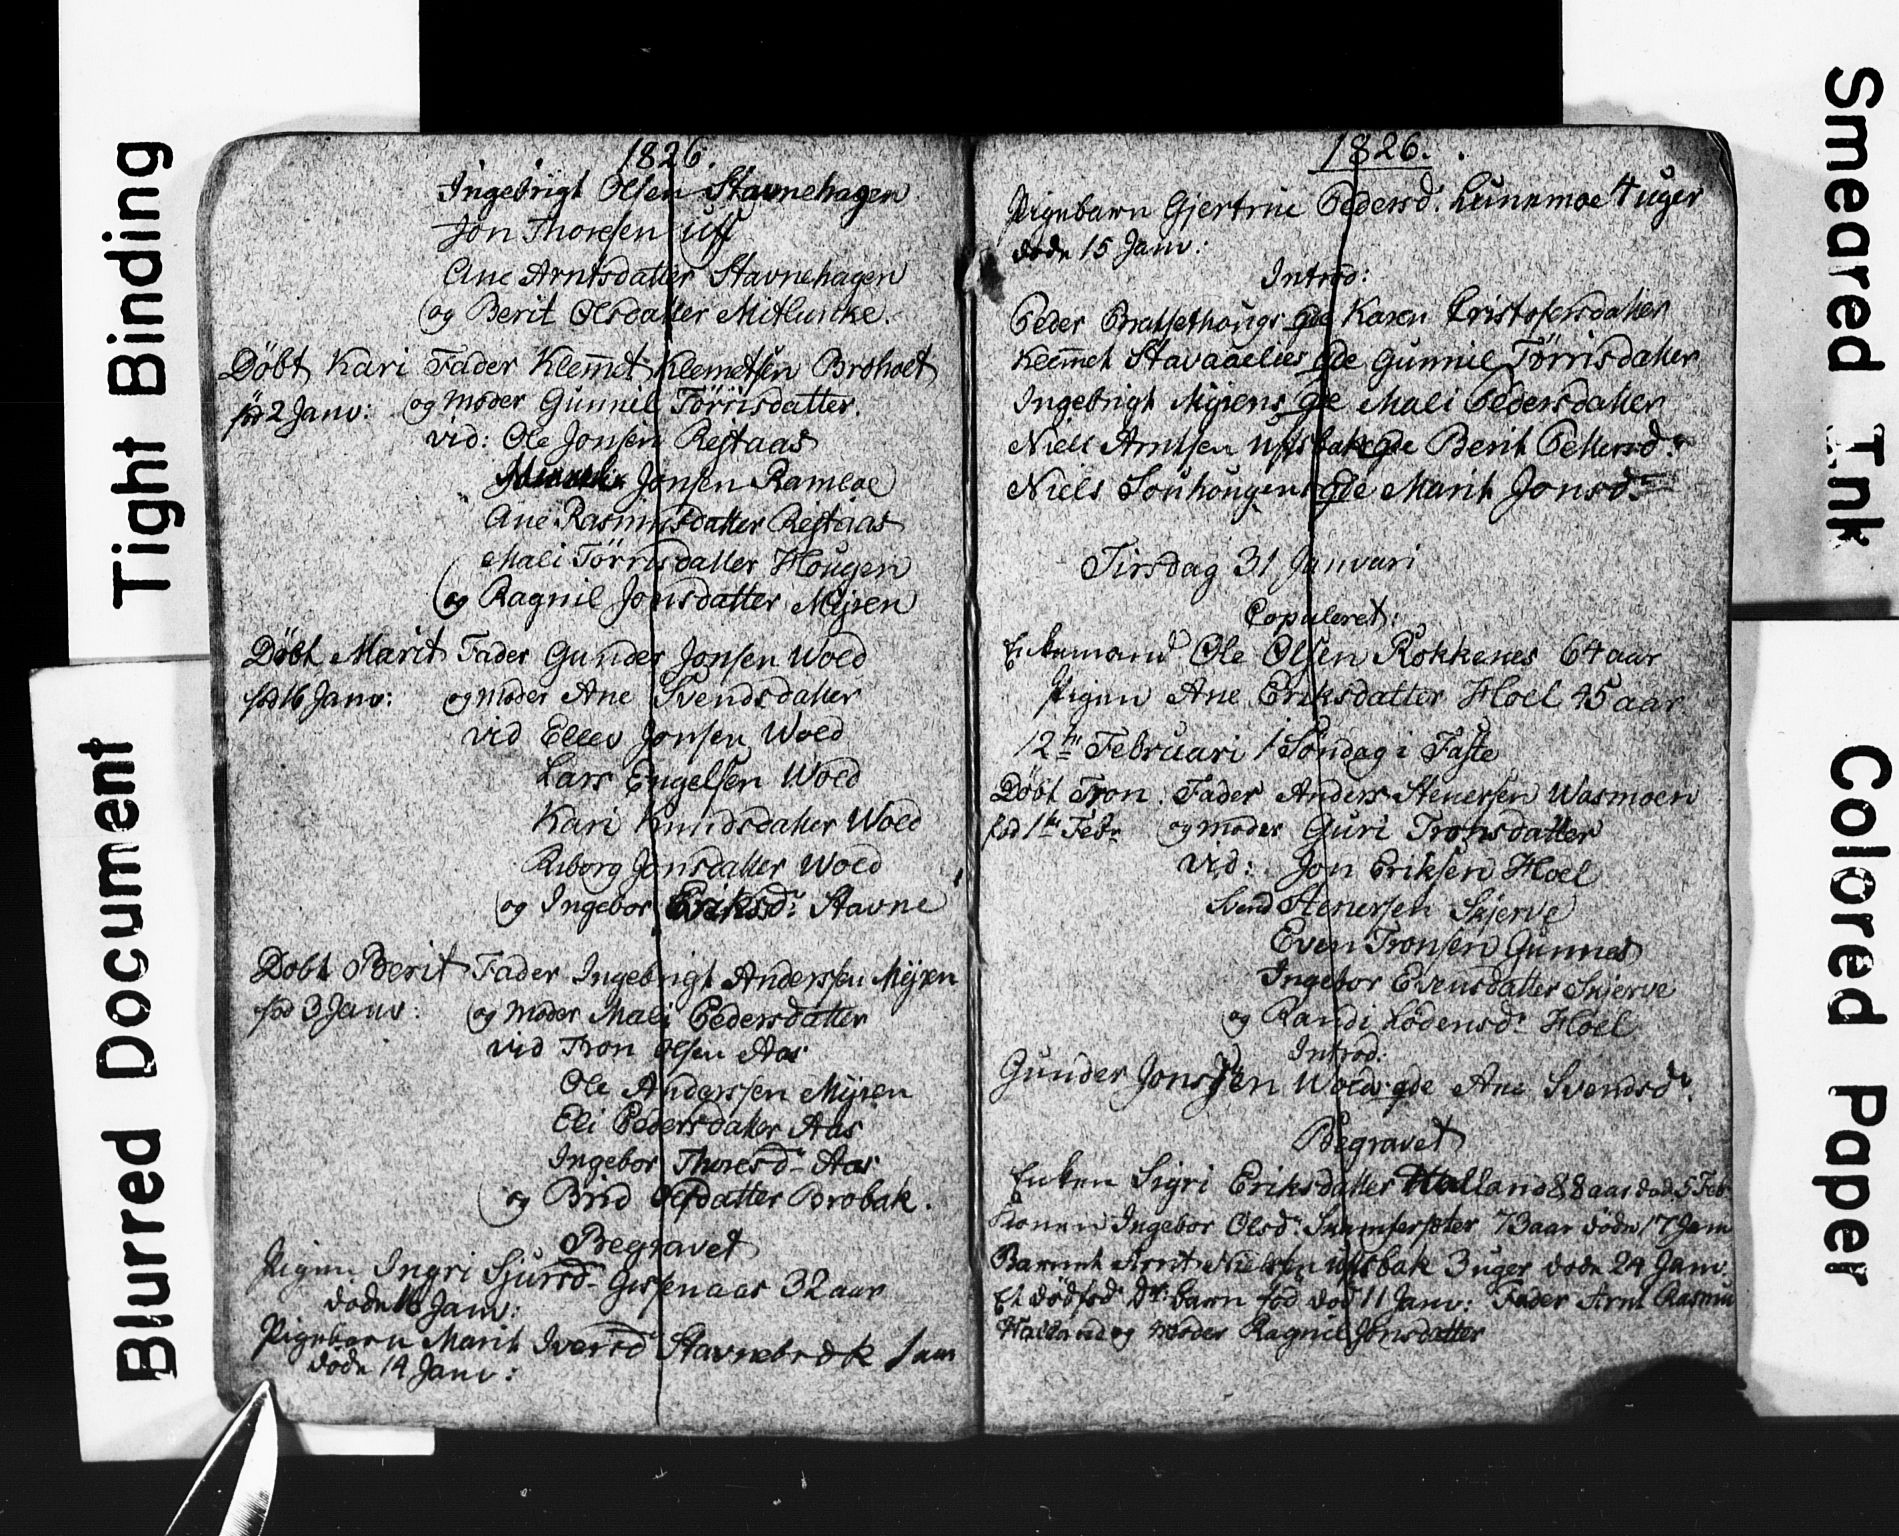 Tight Binding
Blurred Document
1826.
Ingebrigt Olsen Stavnehagen
Jon Thoresen
Ane Arntsdatter Stavnehagen
og Berit Olsdatter Mitlucke.
Döbt Kari Fader Klemet Klemetsen Broholt
föd 2 Janv: og Moder Gunnil Törrisdatter.
vid: Ole Jonsen Rejtaas
Jonsen Ramloe
Ane Rasmusdatter Rejtaas
Mali Törrisdatter Hougen
og Ragnil Jonsdatter Myren
Döbt Marit Fader Gunder Jonsen Wold
föd 16 Janv: og Moder Ane Svendsdatter
vid Ellev Jonsen Wold
Lars Engelsen Wold
Kari Knudsdatter Wold
Riborg Jonsdatter Wold
og Ingebor Eriksd: Stavne
Döbt Berit Fader Ingebrigt Anderssen Myren
föd 3 Janv: og Moder Mali Pedersdatter
vid Tron Olsen Aas
Ole Anderssen Myren
Eli Pedersdatter Aas
Ingebor Thoresd: Aas
og Brid Olsdatter Brobak.
Begravet
Pigen Ingri Sjursd: Gissenaas 32 aar
döde 16 Janv:
Pigebarn Marit Iversd Stavnebrek 1 aar
döde 14 Janv:
1826.
Pigebarn Gjertrue Pedersd: Lunnmoe 4 uger
döde 15 Janv:
Introd:
Peder Bratsethougs gde Karen Cristofersdatter
Klemet Stavaaelies gde Gunnil Törrisdatter
Ingebrigt Myrens gde Mali Pedersdatter
Niels Arntsen Ustbak gde Berit Pettersd:
Niels Souhougens gde Marit Jonsd:
Tirsdag 31 Januari
Copuleret:
Enkemand Ole Olsen Rokkenes 64 aar
Pigen Ane Eriksdatter Hoel 45 aar
12te Februari 1 Söndag i Faste
Döbt Tron. Fader Anders Stenersen Wasmoen
föd 1te Febr og Moder Guri Tronsdatter
vid: Jon Eriksen Hoel
Svend Stenersen Skjerve
Even Tronsen Gunnes
Ingebor Evensdatter Skjerve
og Randi Lödensd: Hoel
Introd:
Gunder Jonssen Wolds gde Ane Svendsd:
Begravet
Enken Sigri Eriksdatter Halland 88 aar död 5 Feb:
Konen Ingebor Olsd: 73 aar döde 17 Jan
Barnet Arnt Nielsen Ustbak 3 uger döde 24 Janv
Et dödföd Dr: barn föd död 11 Janv: Fader Arnt Rasmu
Halland og Moder Ragnil Jonsdatter
Smeared Ink
Colored Paper